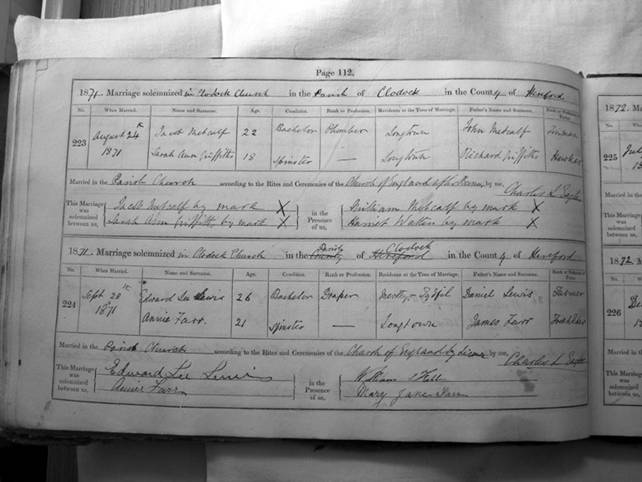 Page 112.
1871. Marriage solemnized in Clodock Church in the Parish of Clodock in the County of Hereford
No. When Married. Name and Surname. Age. Condition. Rank or Profession. Residence at the Time of Marriage. Father's Name and Surname.
223 August 24th 1871 Jacob Metcalf 22 Bachelor Plumber Longtown John Metcalf
Sarah Ann Griffiths 18 Spinster — Longtown Richard Griffiths Hawker
Married in the Parish Church according to the Rites and Ceremonies of the Church of England by me,
This Marriage was solemnized between us, Jacob Metcalf by mark X in the Presence of us, William Metcalf by mark X
Sarah Ann Griffiths by mark X Harriet Watten by mark X
1871. Marriage solemnized in Clodock Church in the Parish of Clodock in the County of Hereford
No. When Married. Name and Surname. Age. Condition. Rank or Profession. Residence at the Time of Marriage. Father's Name and Surname.
224 Sept 28th 1871 Edward Lee Lewis 26 Bachelor Draper Merthyr Tydfil Daniel Lewis Farmer
Annie Farr. 21 Spinster — Longtown James Farr
Married in the Parish Church according to the Rites and Ceremonies of the Church of England by me,
This Marriage was solemnized between us, Edward Lee Lewis in the Presence of us, William Hill
Annie Farr Mary Jane Farr
1872. M
No.
225
1872. M
No.
226